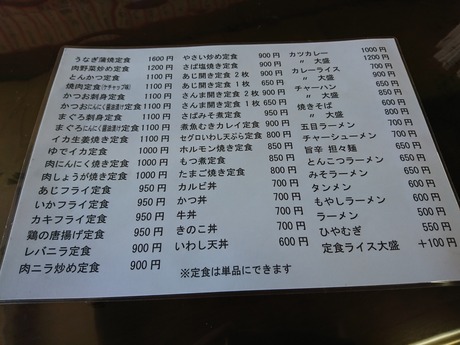 うなぎ蒲焼定食 1600円
肉野菜炒め定食 1200円
とんかつ定食 1100円
焼肉定食(ケチャップ味) 1100円
かつお刺身定食 1100円
かつおにんにく(醤油漬け)定食 1100円
まぐろ刺身定食 1100円
まぐろにんにく(醤油漬け)定食 1100円
イカ生姜焼き定食 1100円
ゆでイカ定食 1000円
肉にんにく焼き定食 1000円
肉しょうが焼き定食 1000円
あじフライ定食 950円
いかフライ定食 950円
カキフライ定食 950円
鶏の唐揚げ定食 950円
レバニラ定食 900円
肉ニラ炒め定食 900円
やさい炒め定食 900円
さば塩焼き定食 900円
あじ開き定食 2枚 900円
あじ開き定食 1枚 650円
さんま開き定食 2枚 900円
さんま開き定食 1枚 650円
さばみそ煮定食 900円
煮魚むきカレイ定食 900円
セグロいわし天ぷら定食 800円
ホルモン焼き定食 800円
もつ煮定食 800円
たまご焼き定食 800円
カルビ丼 700円
かつ丼 700円
牛丼 700円
きのこ丼 700円
いわし天丼 600円
※定食は単品にできます
カツカレー 1000円
〃 大盛 1200円
カレーライス 700円
〃 大盛 900円
チャーハン 650円
〃 大盛 850円
焼きそば 600円
〃 大盛 800円
五目ラーメン 800円
チャーシューメン 700円
旨辛 担々麺 700円
とんこつラーメン 650円
みそラーメン 650円
タンメン 650円
もやしラーメン 600円
ラーメン 500円
ひやむぎ 550円
定食ライス大盛 +100円